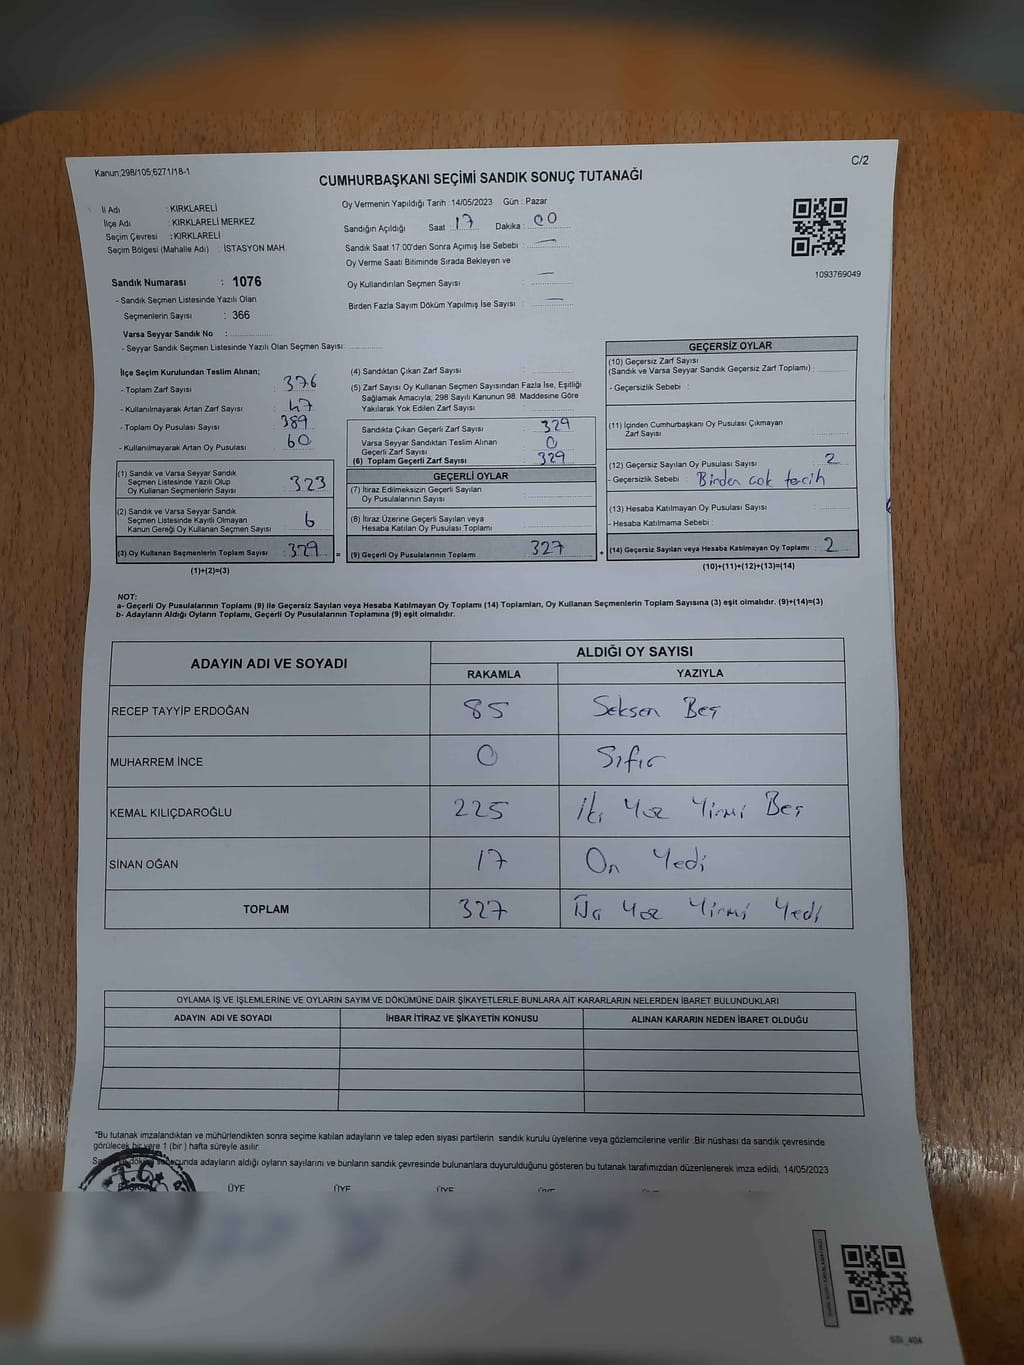 Kanun;298/105;6271/18-1
C/2
CUMHURBAŞKANI SEÇİMİ SANDIK SONUÇ TUTANAĞI
İl Adı : KIRKLARELİ
İlçe Adı : KIRKLARELİ MERKEZ
Seçim Çevresi : KIRKLARELİ
Seçim Bölgesi (Mahalle Adı) : İSTASYON MAH.
Oy Vermenin Yapıldığı Tarih : 14/05/2023 Gün : Pazar
Sandığın Açıldığı Saat : 17 Dakika : 00
Sandık Saat 17:00'den Sonra Açımış İse Sebebi : —
Oy Verme Saati Bitiminde Sırada Bekleyen ve
Oy Kullandırılan Seçmen Sayısı : —
Birden Fazla Sayım Döküm Yapılmış İse Sayısı : —
1093769049
Sandık Numarası : 1076
- Sandık Seçmen Listesinde Yazılı Olan
Seçmenlerin Sayısı : 366
Varsa Seyyar Sandık No :
- Seyyar Sandık Seçmen Listesinde Yazılı Olan Seçmen Sayısı:
İlçe Seçim Kurulundan Teslim Alınan;
- Toplam Zarf Sayısı : 376
- Kullanılmayarak Artan Zarf Sayısı : 47
- Toplam Oy Pusulası Sayısı : 389
- Kullanılmayarak Artan Oy Pusulası : 60
(1) Sandık ve Varsa Seyyar Sandık
Seçmen Listesinde Yazılı Olup
Oy Kullanan Seçmenlerin Sayısı : 323
(2) Sandık ve Varsa Seyyar Sandık
Seçmen Listesinde Kayıtlı Olmayan
Kanun Gereği Oy Kullanan Seçmen Sayısı : 6
(3) Oy Kullanan Seçmenlerin Toplam Sayısı : 329 =
(1)+(2)=(3)
(4) Sandıktan Çıkan Zarf Sayısı :
(5) Zarf Sayısı Oy Kullanan Seçmen Sayısından Fazla İse, Eşitliği
Sağlamak Amacıyla; 298 Sayılı Kanunun 98. Maddesine Göre
Yakılarak Yok Edilen Zarf Sayısı :
Sandıkta Çıkan Geçerli Zarf Sayısı : 329
Varsa Seyyar Sandıktan Teslim Alınan
Geçerli Zarf Sayısı : 0
(6) Toplam Geçerli Zarf Sayısı : 329
GEÇERLİ OYLAR
(7) İtiraz Edilmeksizin Geçerli Sayılan
Oy Pusulalarının Sayısı :
(8) İtiraz Üzerine Geçerli Sayılan veya
Hesaba Katılan Oy Pusulası Toplamı :
(9) Geçerli Oy Pusulalarının Toplamı : 327 +
GEÇERSİZ OYLAR
(10) Geçersiz Zarf Sayısı
(Sandık ve Varsa Seyyar Sandık Geçersiz Zarf Toplamı) :
- Geçersizlik Sebebi :
(11) İçinden Cumhurbaşkanı Oy Pusulası Çıkmayan
Zarf Sayısı :
(12) Geçersiz Sayılan Oy Pusulası Sayısı : 2
- Geçersizlik Sebebi : Birden çok tercih
(13) Hesaba Katılmayan Oy Pusulası Sayısı :
- Hesaba Katılmama Sebebi :
(14) Geçersiz Sayılan veya Hesaba Katılmayan Oy Toplamı : 2
(10)+(11)+(12)+(13)=(14)
NOT:
a- Geçerli Oy Pusulalarının Toplamı (9) ile Geçersiz Sayılan veya Hesaba Katılmayan Oy Toplamı (14) Toplamları, Oy Kullanan Seçmenlerin Toplam Sayısına (3) eşit olmalıdır. (9)+(14)=(3)
b- Adayların Aldığı Oyların Toplamı, Geçerli Oy Pusulalarının Toplamına (9) eşit olmalıdır.
ADAYIN ADI VE SOYADI
ALDIĞI OY SAYISI
RAKAMLA YAZIYLA
RECEP TAYYİP ERDOĞAN 85 Seksen Beş
MUHARREM İNCE 0 Sıfır
KEMAL KILIÇDAROĞLU 225 İki Yüz Yirmi Beş
SİNAN OĞAN 17 On Yedi
TOPLAM 327 Üç Yüz Yirmi Yedi
OYLAMA İŞ VE İŞLEMLERİNE VE OYLARIN SAYIM VE DÖKÜMÜNE DAİR ŞİKAYETLERLE BUNLARA AİT KARARLARIN NELERDEN İBARET BULUNDUKLARI
ADAYIN ADI VE SOYADI İHBAR İTİRAZ VE ŞİKAYETİN KONUSU ALINAN KARARIN NEDEN İBARET OLDUĞU
*Bu tutanak imzalandıktan ve mühürlendikten sonra seçime katılan adayların ve talep eden siyasi partilerin sandık kurulu üyelerine veya gözlemcilerine verilir. Bir nüshası da sandık çevresinde
görülecek bir yere 1 (bir ) hafta süreyle asılır.
adayların aldığı oyların sayılarını ve bunların sandık çevresinde bulunanlara duyurulduğunu gösteren bu tutanak tarafımızdan düzenlenerek imza edildi. 14/05/2023
T.C.
ÜYE ÜYE ÜYE ÜYE